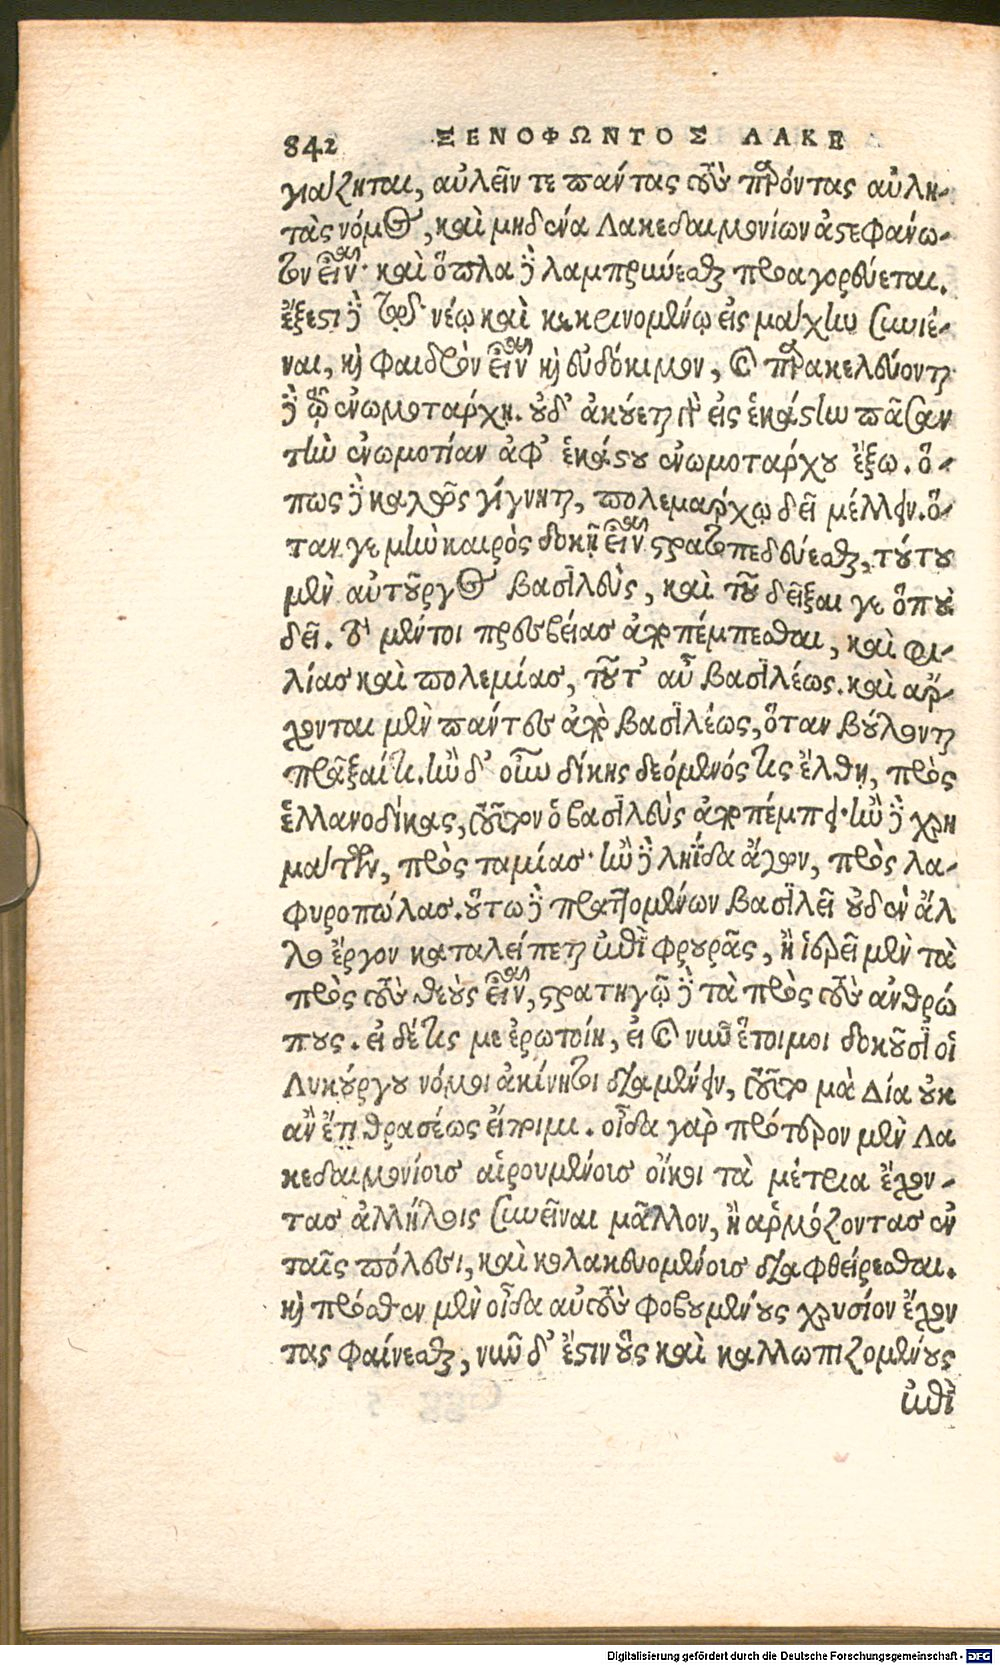 842 ΞΕΝΟΦΩΝΤΟΣ ΛΑΚΕ
γιάζηται, αὐλεῖν τε πάντας τοὺς παρόντας αὐλη-
τὰς νόμος, καὶ μηδένα Λακεδαιμονίων ἀστεφάνω-
τον εἶναι· καὶ ὅπλα δὲ λαμπρύνεσθαι προαγορεύεται.
ἔξεστι δὲ τῷ νέῳ καὶ κεκριμομένῳ εἰς μάχην συνιέ-
ναι, καὶ φαιδρὸν εἶναι καὶ εὐδόκιμον, καὶ παρακελεύονται
δὲ τῷ ἐνωμοτάρχῃ. οὐδ' ἀκούεται γὰρ εἰς ἑκάστην πᾶσαν
τὴν ἐνωμοτίαν ἀφ' ἑκάστου ἐνωμοτάρχου ἔξω. ὅ-
πως δὲ καλῶς γίγνηται, πολεμάρχῳ δεῖ μέλλειν. ὅ-
ταν γε μὴν καιρὸς δοκῇ εἶναι στρατοπεδεύεσθαι, τούτου
μὲν αὐτουργὸς βασιλεὺς, καὶ τοῦ δεῖξαι γε ὅπου
δεῖ. τὸ μέντοι πρεσβείας ἀποπέμπεσθαι, καὶ φι-
λίας καὶ πολεμίας, τοῦτ' αὖ βασιλέως. καὶ ἄρ-
χονται μὲν πάντες ἀπὸ βασιλέως, ὅταν βούλονται
πρᾶξαί τι. ἢν δ' οὖν δίκης δεόμενός τις ἔλθῃ, πρὸς
ἑλλανοδίκας, τοῦτον ὁ βασιλεὺς ἀποπέμπει· ἢν δὲ χρη
μάτων, πρὸς ταμίας· ἢν δὲ ληΐδα ἄγων, πρὸς λα-
φυροπώλας. οὕτω δὲ πραττομένων βασιλεῖ οὐδὲν ἄλ
λο ἔργον καταλείπεται ἐπὶ φρουρᾶς, ἢ ἱερεῖ μὲν τὰ
πρὸς τοὺς θεοὺς εἶναι, στρατηγῷ δὲ τὰ πρὸς τοὺς ἀνθρώ
πους. εἰ δέ τις με ἐρωτοίη, εἰ καὶ νῦν ἕτοιμοι δοκοῦσι οἱ
Λυκούργου νόμοι ἀκίνητοι διαμένειν, τοῦτο μὰ Δία οὐκ
ἂν ἔτι θρασέως εἴποιμι. οἶδα γὰρ πρότερον μὲν Λα
κεδαιμονίοις αἱρουμένοις οἴκοι τὰ μέτρια ἔχον-
τας ἀλλήλοις συνεῖναι μᾶλλον, ἢ ἁρμόζοντας ἐν
ταῖς πόλεσι, καὶ κολακευομένοις διαφθείρεσθαι.
καὶ πρόσθεν μὲν οἶδα αὐτοὺς φοβουμένους χρυσίον ἔχον
τας φαίνεσθαι, νῦν δ' ἔστιν οὓς καὶ καλλωπιζομένους
ἐπὶ
Digitalisierung gefördert durch die Deutsche Forschungsgemeinschaft - DFG